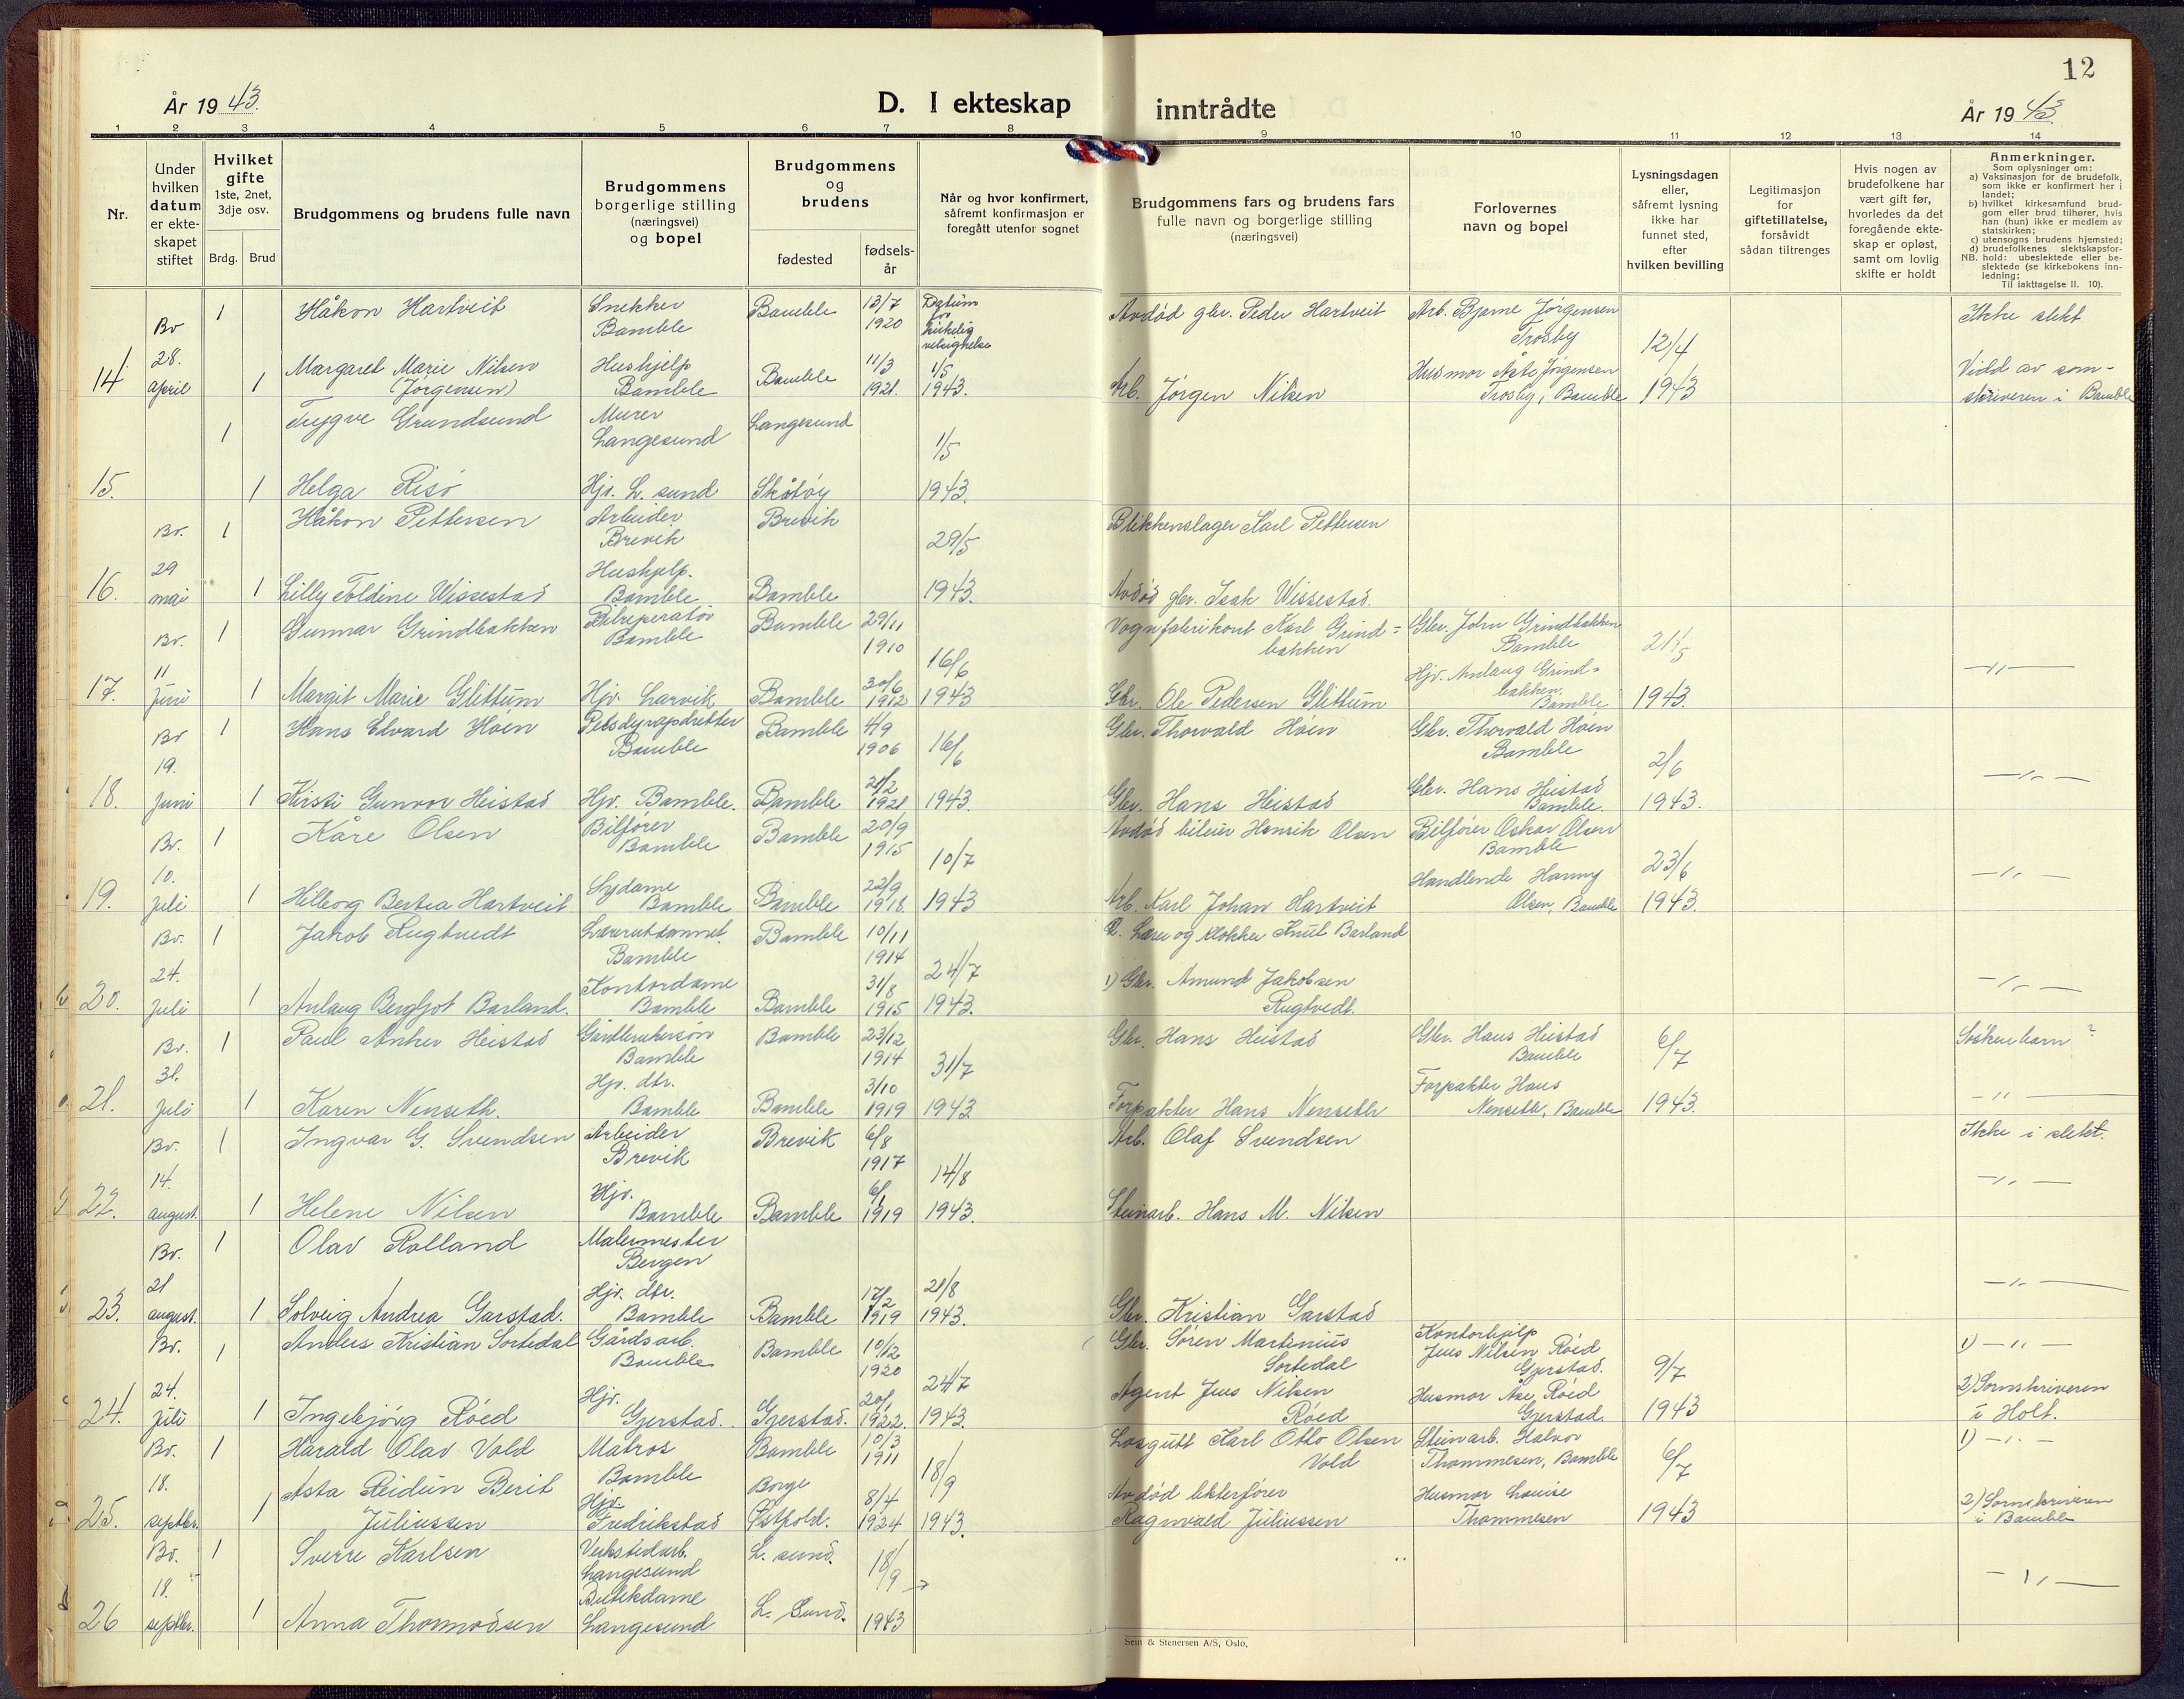 12
År 1943.
D. I ekteskap inntrådte
År 1943.
1 2 3 4 5 6 7 8 9 10 11 12 13 14
Nr.
Under hvilken datum er ekteskapet stiftet
Hvilket gifte
1ste, 2net, 3dje osv.
Brdg. Brud
Brudgommens og brudens fulle navn
Brudgommens borgerlige stilling (næringsvei) og bopel
Brudgommens og brudens
fødested
fødsels-år
Når og hvor konfirmert, såfremt konfirmasjon er foregått utenfor sognet
Brudgommens fars og brudens fars fulle navn og borgerlige stilling (næringsvei)
Forlovernes navn og bopel
Lysningsdagen eller, såfremt lysning ikke har funnet sted, efter hvilken bevilling
Legitimasjon for giftetillatelse, forsåvidt sådan tiltrenges
Hvis nogen av brudefolkene har vært gift før, hvorledes da det foregående ekteskap er opløst, samt om lovlig skifte er holdt
Anmerkninger.
Som oplysninger om:
a) Vaksinasjon for de brudefolk, som ikke er konfirmert her i landet;
b) hvilket kirkesamfund brudgom eller brud tilhører, hvis han (hun) ikke er medlem av statskirken;
c) utensogns brudens hjemsted;
d) brudefolkenes slektskapsforhold: ubeslektede eller beslektede (se kirkebokens innledning;
NB.
Til iakttagelse II. 10).
Br 1 Håkon Hartveit Snekker Bamble Bamble 13/7 1920 Datum for kirkelig velsignelse Avdød gbr. Peder Hartveit Arb. Bjarne Jørgensen Trosby 12/4 Ikke slekt
14 28. april 1 Margaret Marie Nilsen (Jørgensen) Hushjelp Bamble Bamble 11/3 1921. 1/5 1943. Arb. Jørgen Nilsen Husmor Jørgensen Trosby, Bamble 1943 Vidd av sorenskriveren i Bamble
1 Trygve Grundsund Murer Langesund Langesund 1/5
15. 1 Helga Risø Hjv. L.sund Skåtøy 1943.
Br. 1 Håkon Pettersen Arbeider Brevik Brevik 29/5 Blikkenslager Karl Pettersen
16. 29 mai 1 Lilly Toldine Wissestad Hushjelp. Bamble Bamble 1943. Avdød gbr. Isak Wissestad.
Br. 1 Gunnar Grindbakken Bilreperatør Bamble Bamble 29/11 1910 16/6 Vognfabrikant Karl Grindbakken Gbr. John Grindbakken Bamble 21/5
17. 11 Juni 1 Margit Marie Glittum Hjv. Larvik Bamble 30/6 1912 1943 Gbr. Ole Pedersen Glittum Hjv. Anlaug Grindbakken, Bamble 1943. —"—
Br 1 Hans Edvard Hoen Pelsdyropdretter Bamble Bamble 4/9 1906 16/6 Gbr. Thorvald Höen Gbr. Thorvald Höen Bamble 2/6
18. 19. Juni 1 Kirsti Gunvor Heistad Hjv. Bamble. Bamble 1921 1943. Gbr. Hans Heistad Gbr. Hans Heistad Bamble. 1943. —"—
Br. 1 Kåre Olsen Bilfører Bamble Bamble 20/9 1915 10/7 Avdød Henrik Olsen Bilfører Oskar Olsen Bamble 23/6
19. 10. Juli 1 Hilborg Bertea Hartveit Sydame Bamble Bamble 22/9 1918. 1943 Arb. Karl Johan Hartveit Handlende Hanny Olsen, Bamble 1943. —"—
Br. 1 Jakob Rugtvedt Lærerutdannet. Bamble Bamble 10/11 1914 24/7 2. Lærer og klokker Knut Barland
20. 24. Juli 1 Anlaug Bergljot Barland. Kontordame Bamble Bamble 31/8 1915 1943. 1) Gbr. Amund Jakobsen Rugtvedt. —"—
Br. 1 Paul Anker Heistad Gårdbrukersønn Bamble Bamble 23/12 1914 31/7 Gbr. Hans Heistad Gbr. Hans Heistad Bamble 6/7 Søskenbarn ?
21. 31. Juli 1 Karen Nenseth. Hjv. dtr. Bamble Bamble 3/10 1919 1943 Forpakter Hans Nenseth Forpakter Hans Nenseth, Bamble 1943. —"—
Br. 1 Ingvar G. Svendsen Arbeider Brevik Brevik 6/8 1917 14/8 Arb. Olaf Svendsen Ikke i slekt.
22. 14. august. 1 Helene Nilsen Hjv. Bamble Bamble 6/1 1919 1943. Steinarb. Hans M. Nilsen —"—
Br. 1 Olav Rolland Malermester Bergen
23. 21 august. 1 Solveig Andrea Garstad. Hjv. dtr. Bamble Bamble 17/2 1919 21/8 1943. Gbr. Kristian Garstad —"—
Br. 1 Anders Kristian Sortedal Gårdsarb. Bamble Bamble 10/12 1920 24/7 Gbr. Søren Martinius Sortedal Kontorhjelp Jens Nilsen Röed Gjerstad. 9/7 1) —"—
24. 24. Juli 1 Ingebjörg Röed Hjv. Gjerstad. Gjerstad. 20/1 1922. 1943. Agent Jens Nilsen Röed Husmor Åse Röed Gjerstad. 1943 2) Sorenskriveren i Holt.
Br. 1 Harald Olav Vold Matros Bamble Bamble 10/3 1911 18/9 Losgutt Karl Otto Olsen Vold Steinarb. Halvor Thommesen, Bamble 6/7 1) —"—
25. 18. septbr. 1 Asta Reidun Berit Juliussen Hjv. Fredrikstad Borge Østfold. 8/4 1924 1943. Avdød lekterfører Ragnvald Juliussen Husmor Louise Thommesen 1943 2) Sorenskriveren i Bamble
Br. 1 Sverre Karlsen Verkstedarb. Langesund L. sund. 18/9
26 18. septbr. 1 Anna Thormodsen Butikdame Langesund L. Sund. 1943 —"—
Sem & Stenersen A/S, Oslo.